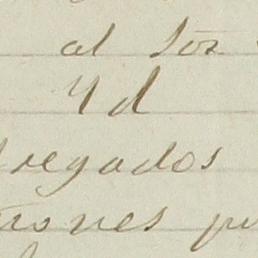 al Sor
Yd
regados
ones pu